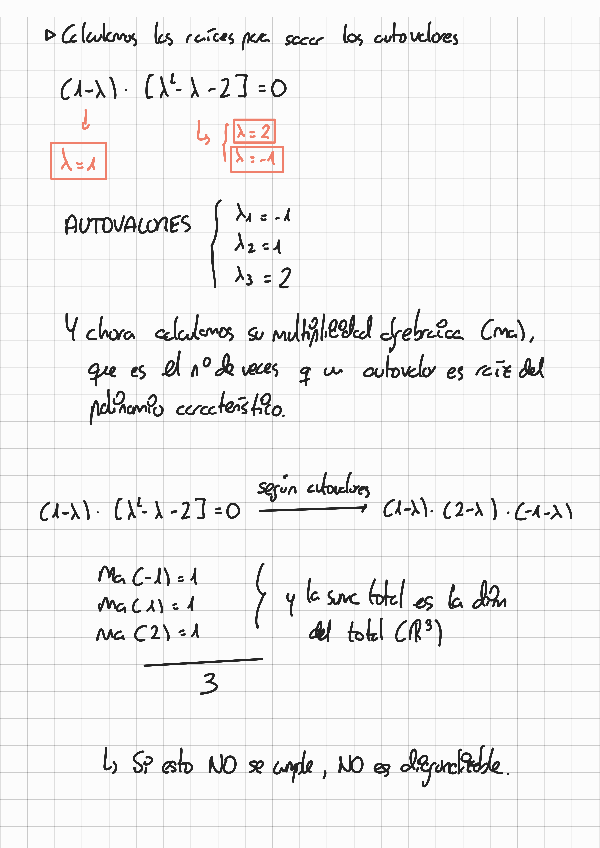 ▷ Calculamos las raíces para sacar los autovalores
(1-λ) · [λ² - λ - 2] = 0
λ = 1
λ = 2
λ = -1
AUTOVALORES { λ1 = -1
λ2 = 1
λ3 = 2
Y ahora calculamos su multiplicidad algebraica (ma),
que es el nº de veces q un autovalor es raíz del
polinomio característico.
(1-λ) · [λ² - λ - 2] = 0 según autovalores → (1-λ) · (2-λ) · (-1-λ)
Ma (-1) = 1
Ma (1) = 1
Ma (2) = 1
} y la suma total es la dim
del total (R³)
3
↳ Si esto NO se cumple, NO es diagonalizable.